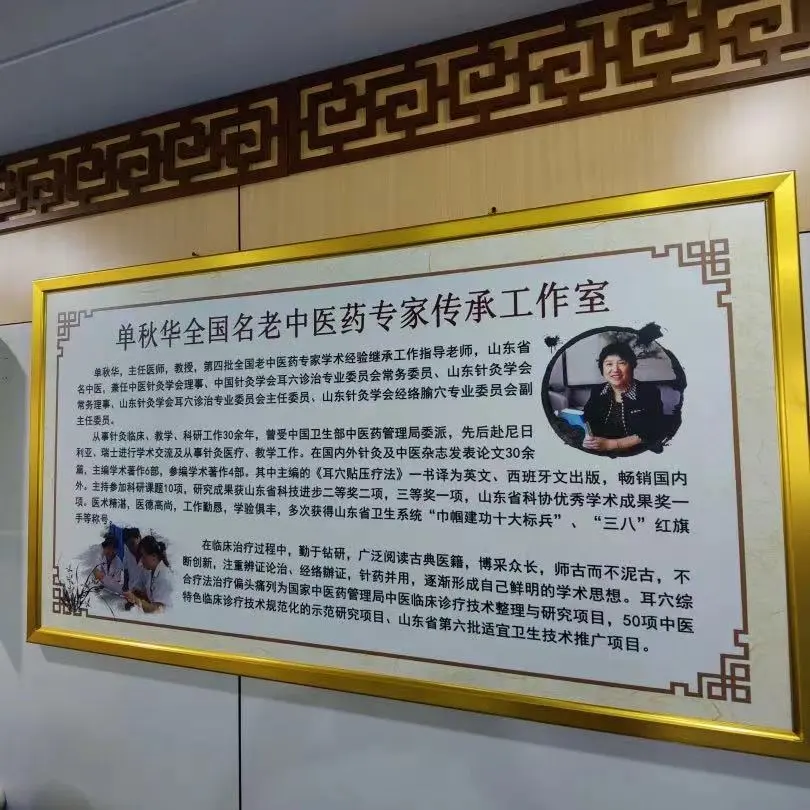 单秋华全国名老中医药专家传承工作室
单秋华，主任医师，教授，第四批全国老中医药专家学术经验继承工作指导老师，山东省
名中医，兼任中医针灸学会理事、中国针灸学会耳穴诊治专业委员会常务委员、山东针灸学会
常务理事、山东针灸学会耳穴诊治专业委员会主任委员、山东针灸学会经络腧穴专业委员会副
主任委员。
从事针灸临床、教学、科研工作30余年，曾受中国卫生部中医药管理局委派，先后赴尼日
利亚、瑞士进行学术交流及从事针灸医疗、教学工作。在国内外针灸及中医杂志发表论文30余
篇，主编学术著作6部，参编学术著作4部。其中主编的《耳穴贴压疗法》一书译为英文、西班牙文出版，畅销国内
外。主持参加科研课题10项，研究成果获山东省科技进步二等奖二项，三等奖一项，山东省科协优秀学术成果奖一
项。医术精湛，医德高尚，工作勤恳，学验俱丰，多次获得山东省卫生系统“巾帼建功十大标兵”、“三八”红旗
手等称号。
在临床治疗过程中，勤于钻研，广泛阅读古典医籍，博采众长，师古而不泥古，不
断创新，注重辨证论治、经络辩证，针药并用，逐渐形成自己鲜明的学术思想。耳穴综
合疗法治疗偏头痛列为国家中医药管理局中医临床诊疗技术整理与研究项目，50项中医
特色临床诊疗技术规范化的示范研究项目、山东省第六批适宜卫生技术推广项目。